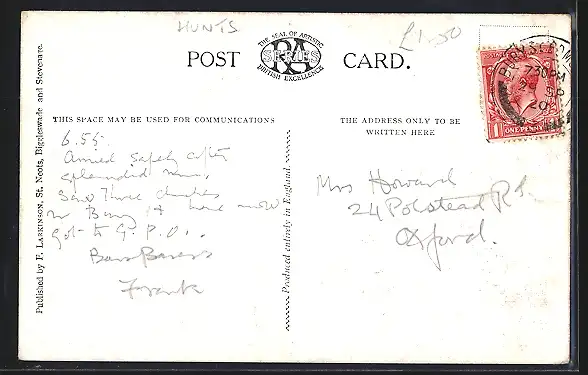 HUNTS
£1.50
POST CARD.
THE SEAL OF ARTISTIC
RA
SERIES
BRITISH EXCELLENCE
THIS SPACE MAY BE USED FOR COMMUNICATIONS
THE ADDRESS ONLY TO BE
WRITTEN HERE
BURY ST. EDM
7 30 PM
SP
20
ONE PENNY
6.55.
Arrived safely after
splendid run.
Saw Three churches
in Bury & have now
got to G.P.O..
Frank
Mrs Howard
24 Polstead Rd.
Oxford.
Published by F. LARKINSON, St. Neots, Biggleswade and Stevenage.
Produced entirely in England.